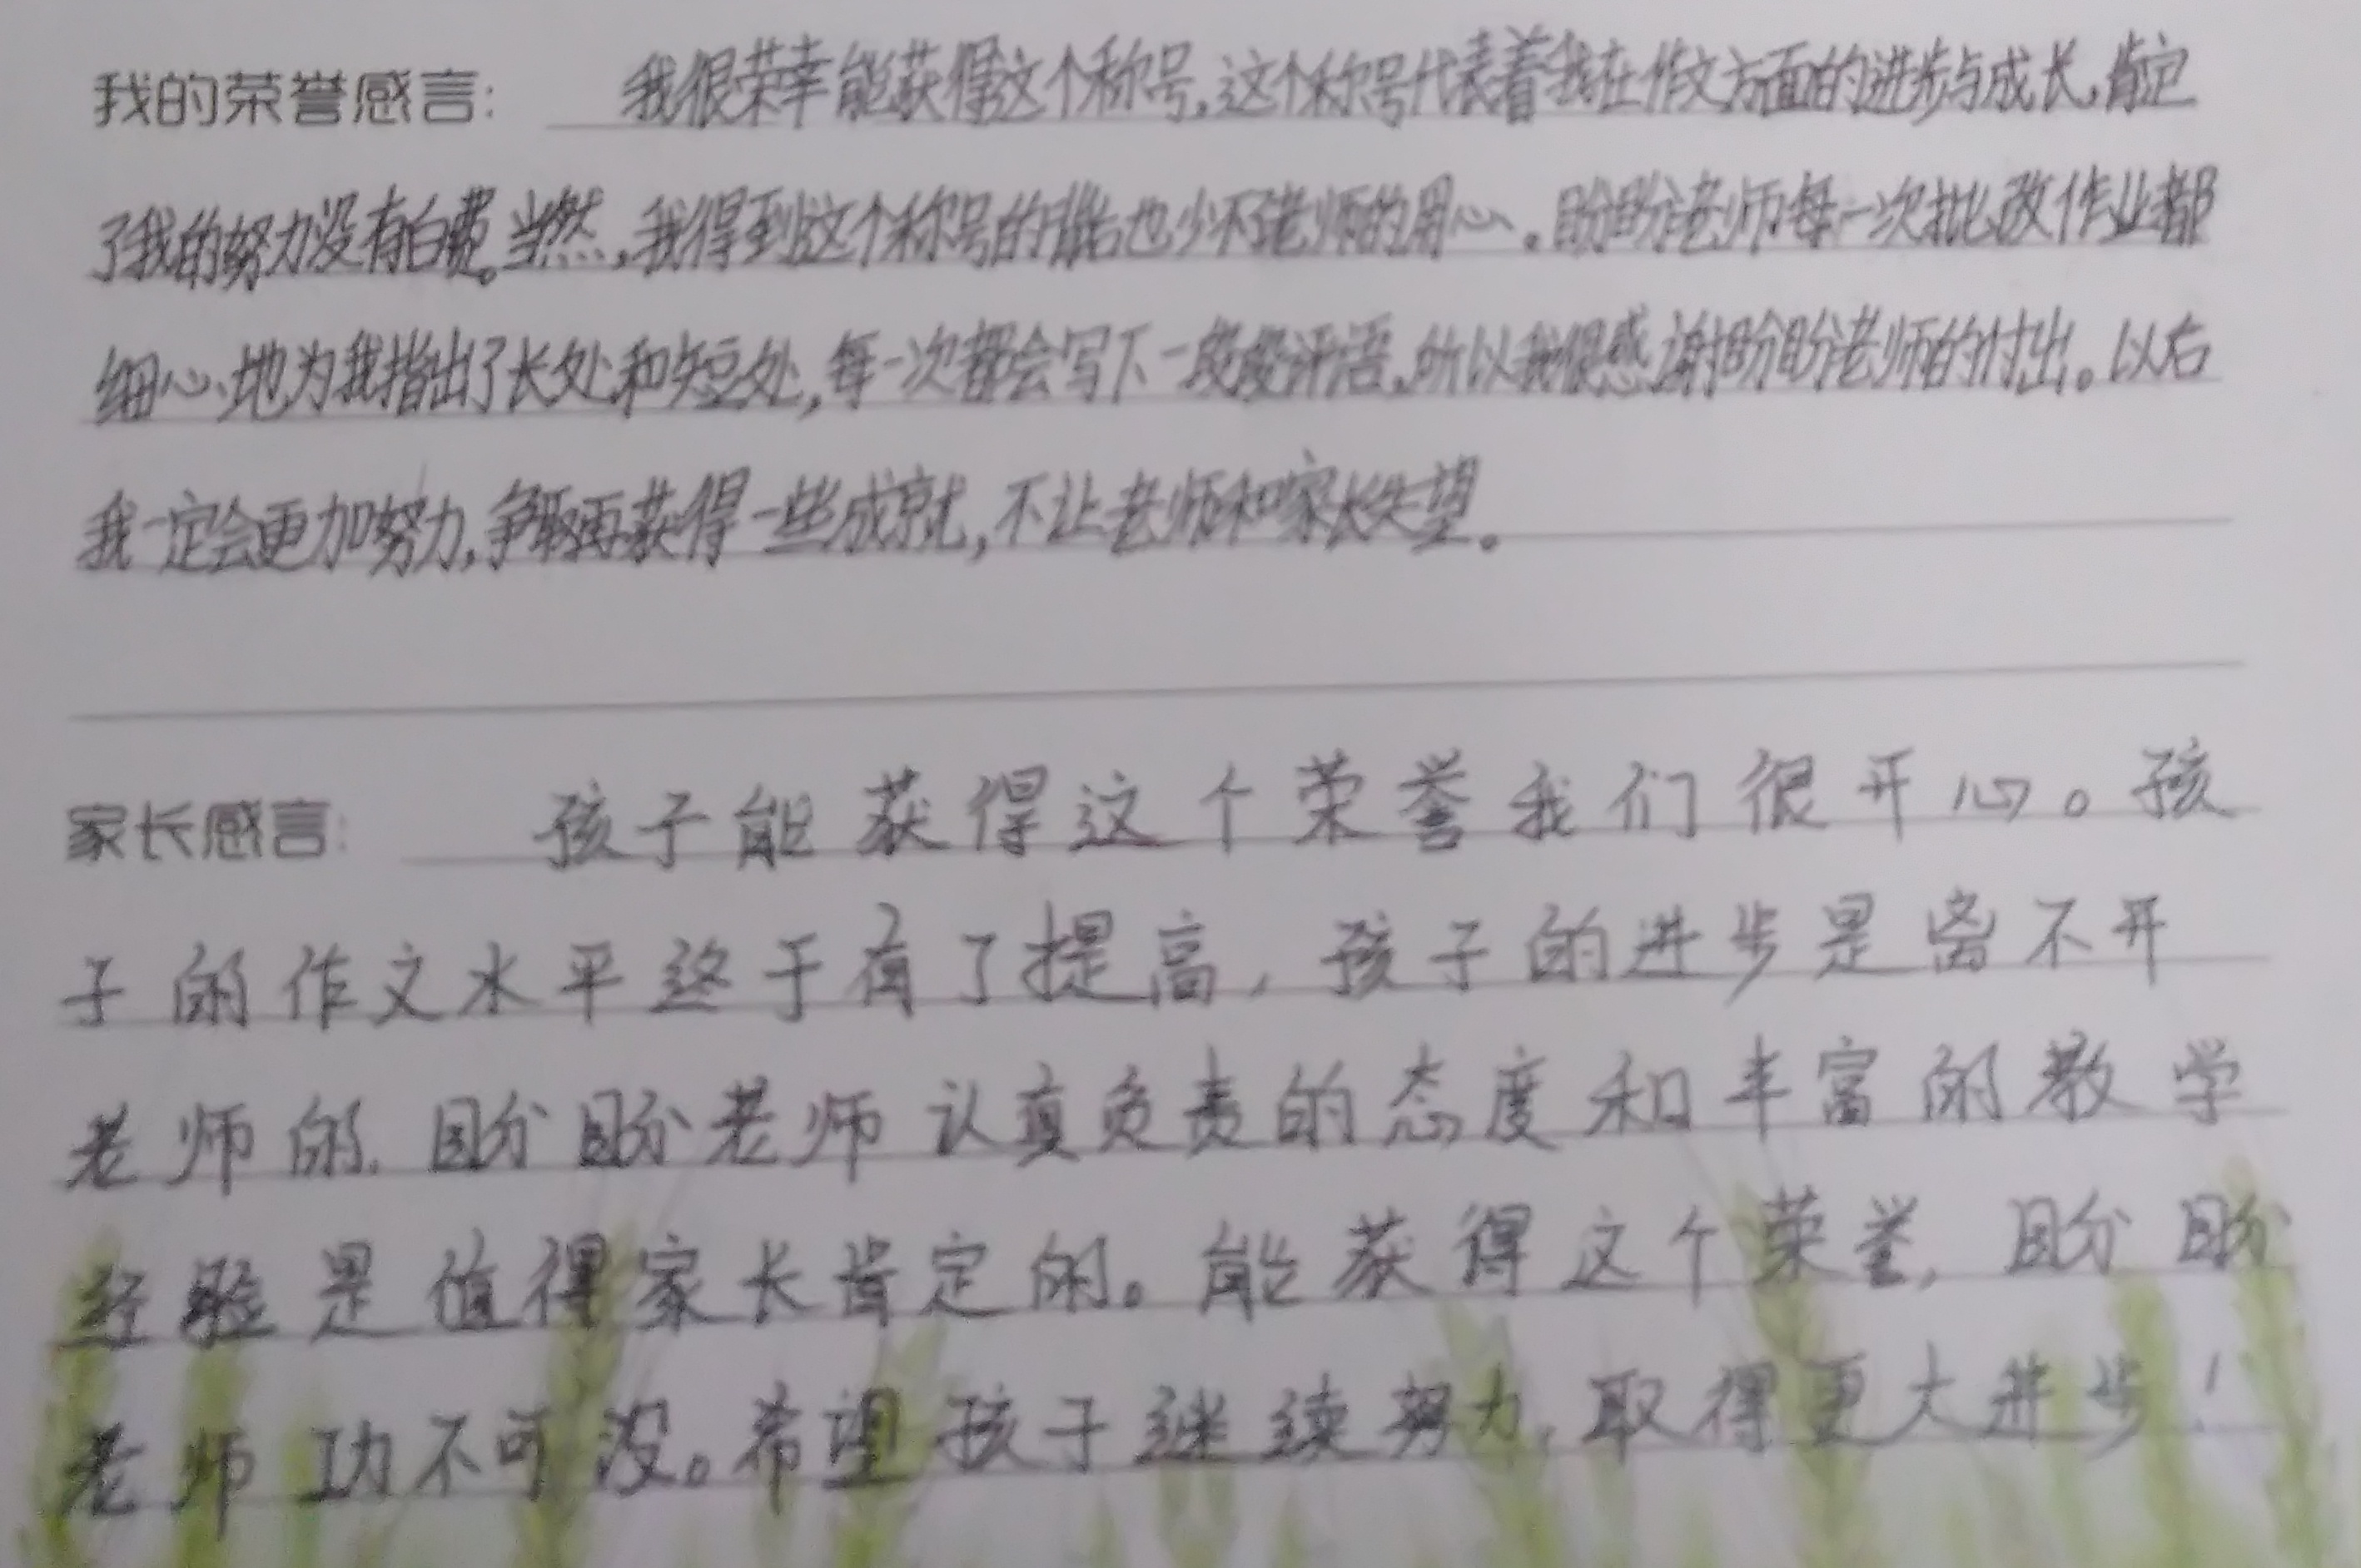 我的荣誉感言: 我很荣幸能获得这个称号,这个称号代表着我在作文方面的进步与成长,肯定
了我的努力没有白费。当然,我得到这个称号的背后也少不了老师的用心。盼盼老师每一次批改作业都
细心地为我指出了长处和短处,每一次都会写下一段段评语,所以我很感谢盼盼老师的付出。以后
我一定会更加努力,争取再获得一些成就,不让老师和家长失望。
家长感言: 孩子能获得这个荣誉我们很开心。孩
子的作文水平终于有了提高,孩子的进步是离不开
老师的,盼盼老师认真负责的态度和丰富的教学
经验是值得家长肯定的。能获得这个荣誉,盼盼
老师功不可没。希望孩子继续努力,取得更大进步!